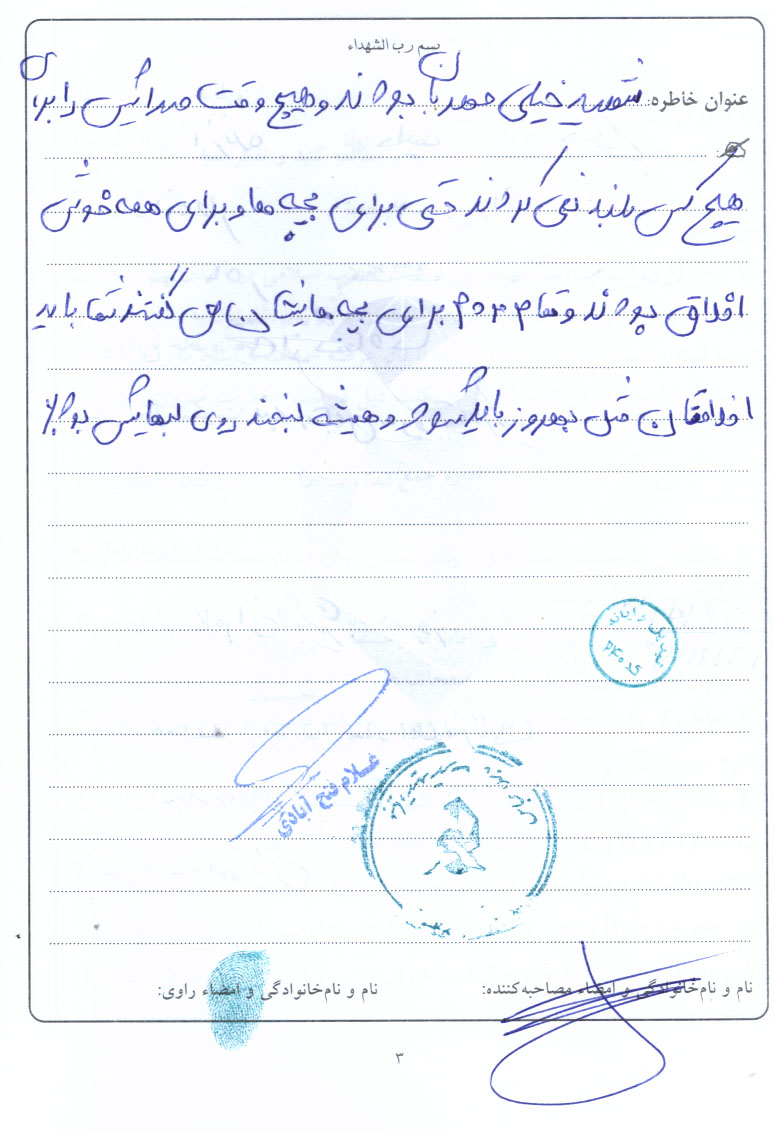 بسم رب الشهداء
عنوان خاطره: شهید خیلی مهربان بودند و هیچ وقت صدایش را برای
هیچ کس بلند نمی کردند حتی برای بچه ها و برای همه خوش
اخلاق بودند و تمام مردم برای بچه هایشان می گفتند شما باید
اخلاقتان مثل بهروز باید شود و همیشه لبخند روی لبهایش بود
کد ۲۴۰
غلام فتح آبادی
نام و نام‌خانوادگی و امضاء مصاحبه‌کننده:
نام و نام‌خانوادگی و امضاء راوی:
۳